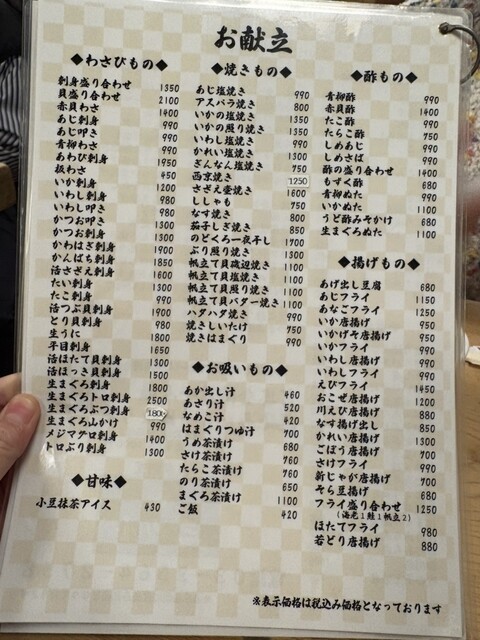 お献立
◆わさびもの◆
刺身盛り合わせ 1350
貝盛り合わせ 2100
赤貝わさ 1400
あじ刺身 990
あじ叩き 990
青柳わさ 990
あわび刺身 1950
板わさ 450
いか刺身 1200
いわし刺身 980
いわし叩き 980
かつお叩き 1300
かつお刺身 1300
かわはぎ刺身 1900
かんぱち刺身 1850
活さざえ刺身 1600
たい刺身 1300
たこ刺身 990
活つぶ貝刺身 1900
とり貝刺身 980
生うに 1800
平目刺身 1650
活ほたて貝刺身 1300
活ほっき貝刺身 1500
生まぐろ刺身 1800
生まぐろトロ刺身 2500
生まぐろぶつ刺身 1800
生まぐろ山かけ 990
メジマグロ刺身 1400
トロぶり刺身 1300
◆甘味◆
小豆抹茶アイス 430
◆焼きもの◆
あじ塩焼き 990
アスパラ焼き 800
いかの塩焼き 1250
いかの照り焼き 1250
いわし塩焼き 990
かれい塩焼き 1300
ぎんなん塩焼き 750
西京焼き 1250
さざえ壷焼き 1600
ししゃも 750
なす焼き 800
茄子しぎ焼き 850
のどくろ一夜干し 1700
ぶり照り焼き 1300
帆立て貝磯辺焼き 1100
帆立て貝塩焼き 1100
帆立て貝照り焼き 1100
帆立て貝バター焼き 1100
ハタハタ焼き 990
焼きしいたけ 750
焼きはまぐり 990
◆お吸いもの◆
あか出し汁 460
あさり汁 520
なめこ汁 420
はまぐりつゆ汁 700
うめ茶漬け 680
さけ茶漬け 760
たらこ茶漬け 760
のり茶漬け 650
まぐろ茶漬け 1100
ご飯 420
◆酢もの◆
青柳酢 990
赤貝酢 1400
たこ酢 990
たらこ酢 750
しめあじ 990
しめさば 990
酢の盛り合わせ 1400
もずく酢 680
青柳ぬた 990
いかぬた 1100
うど酢みそかけ 680
生まぐろぬた 1100
◆揚げもの◆
あげ出し豆腐 680
あじフライ 1150
あなごフライ 1250
いか唐揚げ 950
いかげそ唐揚げ 950
いかフライ 950
いわし唐揚げ 990
いわしフライ 990
えびフライ 1450
おこぜ唐揚げ 1200
川えび唐揚げ 880
なす揚げ出し 850
かれい唐揚げ 1300
ごぼう唐揚げ 700
さけフライ 990
新じゃが唐揚げ 700
そら豆揚げ 680
フライ盛り合わせ 1250
(海老1鮭1帆立2)
ほたてフライ 980
若どり唐揚げ 880
※表示価格は税込み価格となっております